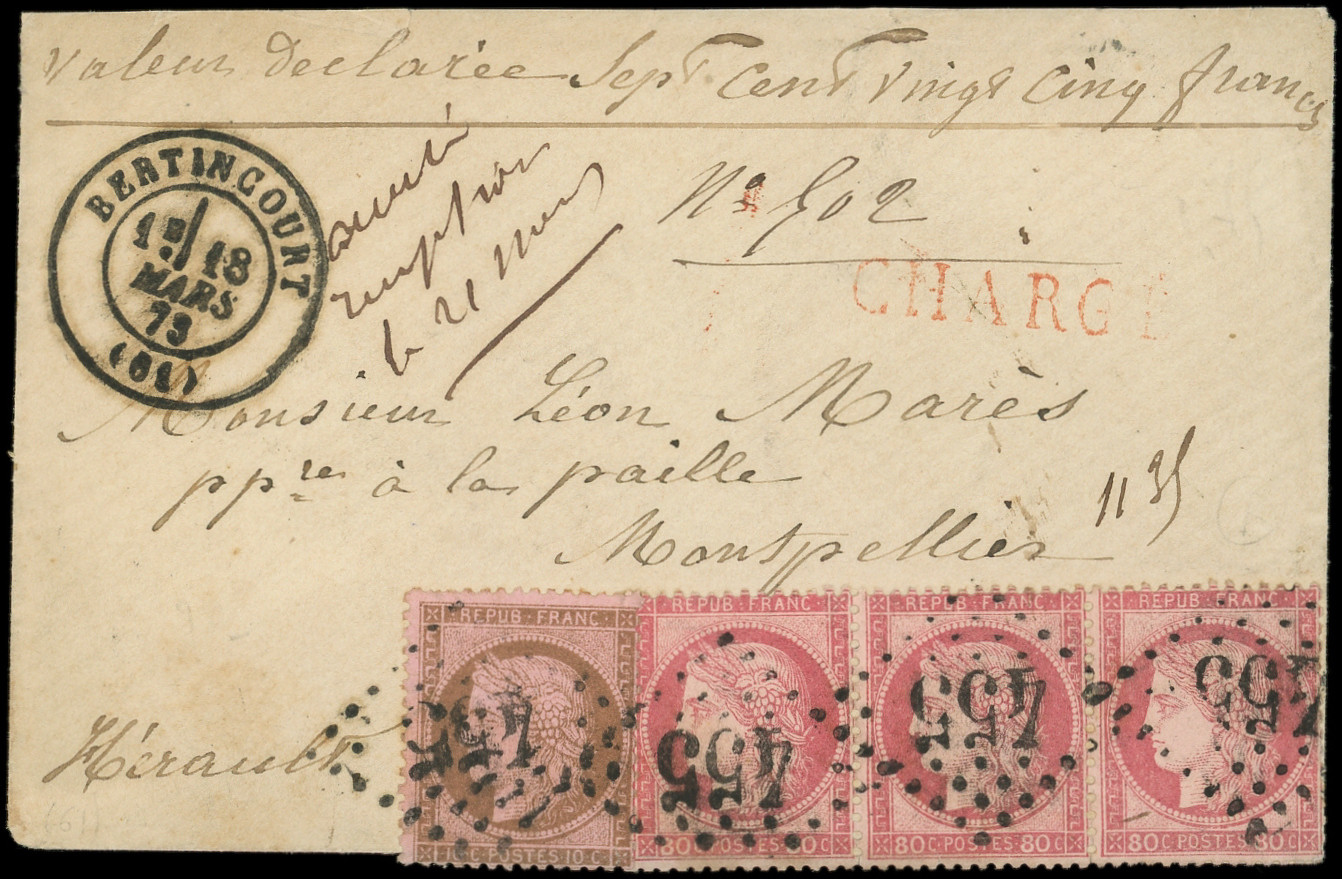 Valeur Declarée Sept Cent Vingt Cinq francs
BERTINCOURT
1E/ 18
MARS
73
(61)
réception
le 21 Mars
No 502
CHARGÉ
Monsieur Léon Marès
ppre à la paille
Montpellier
11 35
Hérault
REPUB·FRANC
455
10 C·POSTES·10 C
REPUB·FRANC
455
80 C·POSTES·80 C
REPUB·FRANC
455
80 C·POSTES·80 C
REPUB·FRANC
455
80 C·POSTES·80 C